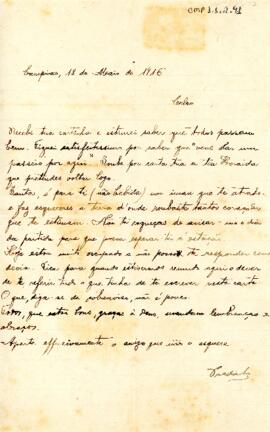 CMP 1.1.2.41
Campinas, 18 de Maio de 1916
Recebi tua cartinha e estimei saber que todos passam
bem. Fiquei satisfeitissimo por saber que "vens dar um
passeio por aqui". Soube por carta tua a tia
que pretendes voltar logo.
Santos, é para ti (não bebida) um iman que te attrahe
e faz esqueceres a terra d'onde tantos corações
que te estimam. Não te esqueças de avisar-me o dia
da partida para que possa esperar-te á estação.
Hoje estou muito ocupado e não posso te responder como
devia. Fica para quando estivermos reunidos aqui o dever
de te referir tudo o que tinha de te escrever nesta carta
O que, diga-se de , não é pouco.
Todos, que estão bons, graças a Deus, mandam lembranças e
abraços.
Aperta-te affectivamente o amigo que não o esquece